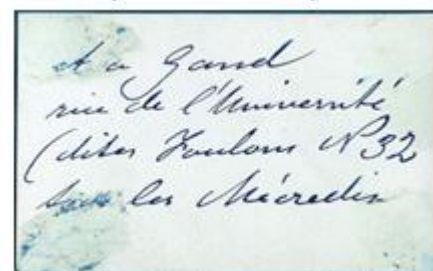 et a Gand
rue de l'Université
(dites Foulons N° 32
tous les Mécredis